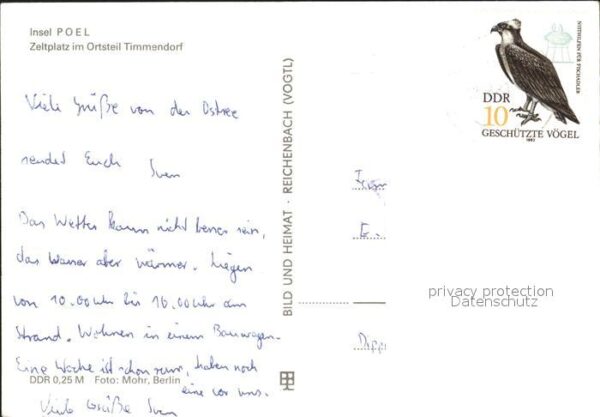 Insel POEL
Zeltplatz im Ortsteil Timmendorf
Viele Grüße von der Ostsee
sendet Euch Sven
Das Wetter kann nicht besser sein,
das Wasser aber wärmer. Liegen
von 10.00 Uhr bis 16.00 Uhr am
Strand. Wohnen in einem Bauwagen.
Eine Woche ist schon rum, haben noch
eine vor uns.
Viele Grüße Sven
DDR 0,25 M Foto: Mohr, Berlin
BILD UND HEIMAT · REICHENBACH (VOGTL)
NISTHILFEN FÜR FISCHADLER
DDR
10
GESCHÜTZTE VÖGEL
1982
Fam
E.
Dipp
privacy protection
Datenschutz